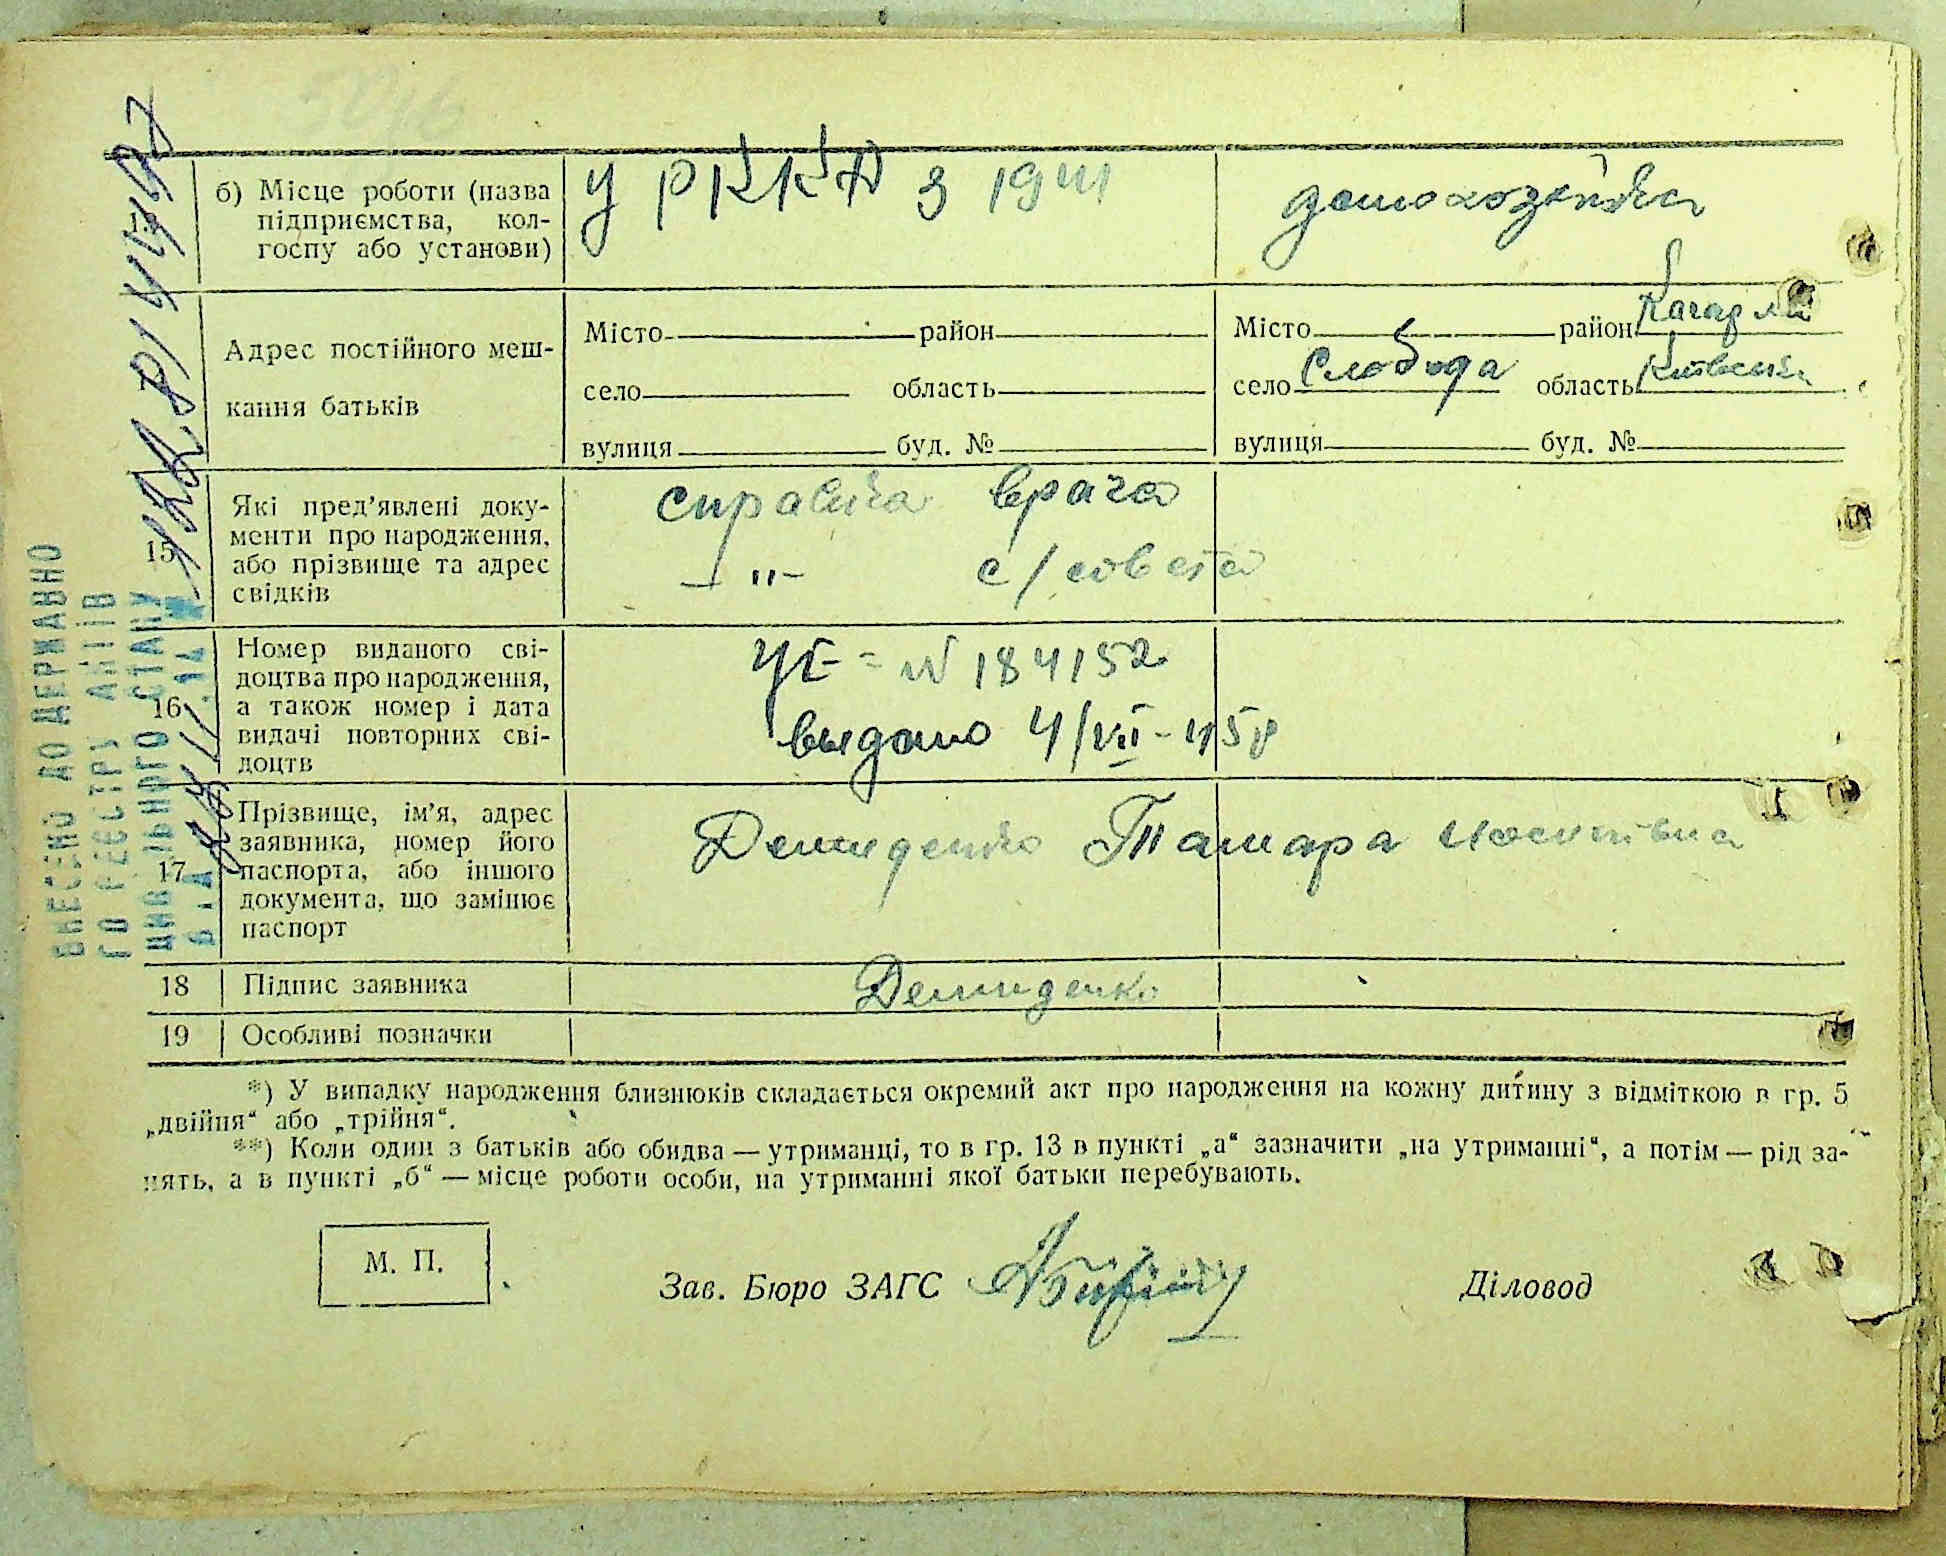 б) Місце роботи (назва
підприємства, кол-
госпу або установи)
у РККА з 1941
домохозяйка
Адрес постійного меш-
кання батьків
Місто район
село область
вулиця буд. №
Місто район Кагарл
село Слобода область Київська
вулиця буд. №
15
Які пред’явлені доку-
менти про народження,
або прізвище та адрес
свідків
справка врача
— " — с/совета
16
Номер виданого сві-
доцтва про народження,
а також номер і дата
видачі повторних сві-
доцтв
УЕ = N 184152
выдано 4/VII-45 р
17
Прізвище, ім’я, адрес
заявника, номер його
паспорта, або іншого
документа, що замінює
паспорт
Демиденко Тамара
18 Підпис заявника Демиденко
19 Особливі позначки
*) У випадку народження близнюків складається окремий акт про народження на кожну дитину з відміткою в гр. 5
„двійня“ або „трійня“.
**) Коли один з батьків або обидва — утриманці, то в гр. 13 в пункті „а“ зазначити „на утриманні“, а потім — рід за-
нять, а в пункті „б“ — місце роботи особи, на утриманні якої батьки перебувають.
М. П.
Зав. Бюро ЗАГС
Діловод
ВНЕСЕНО ДО ДЕРЖАВНО
ГО РЕЄСТРУ АКТІВ
ЦИВІЛЬНОГО СТАНУ